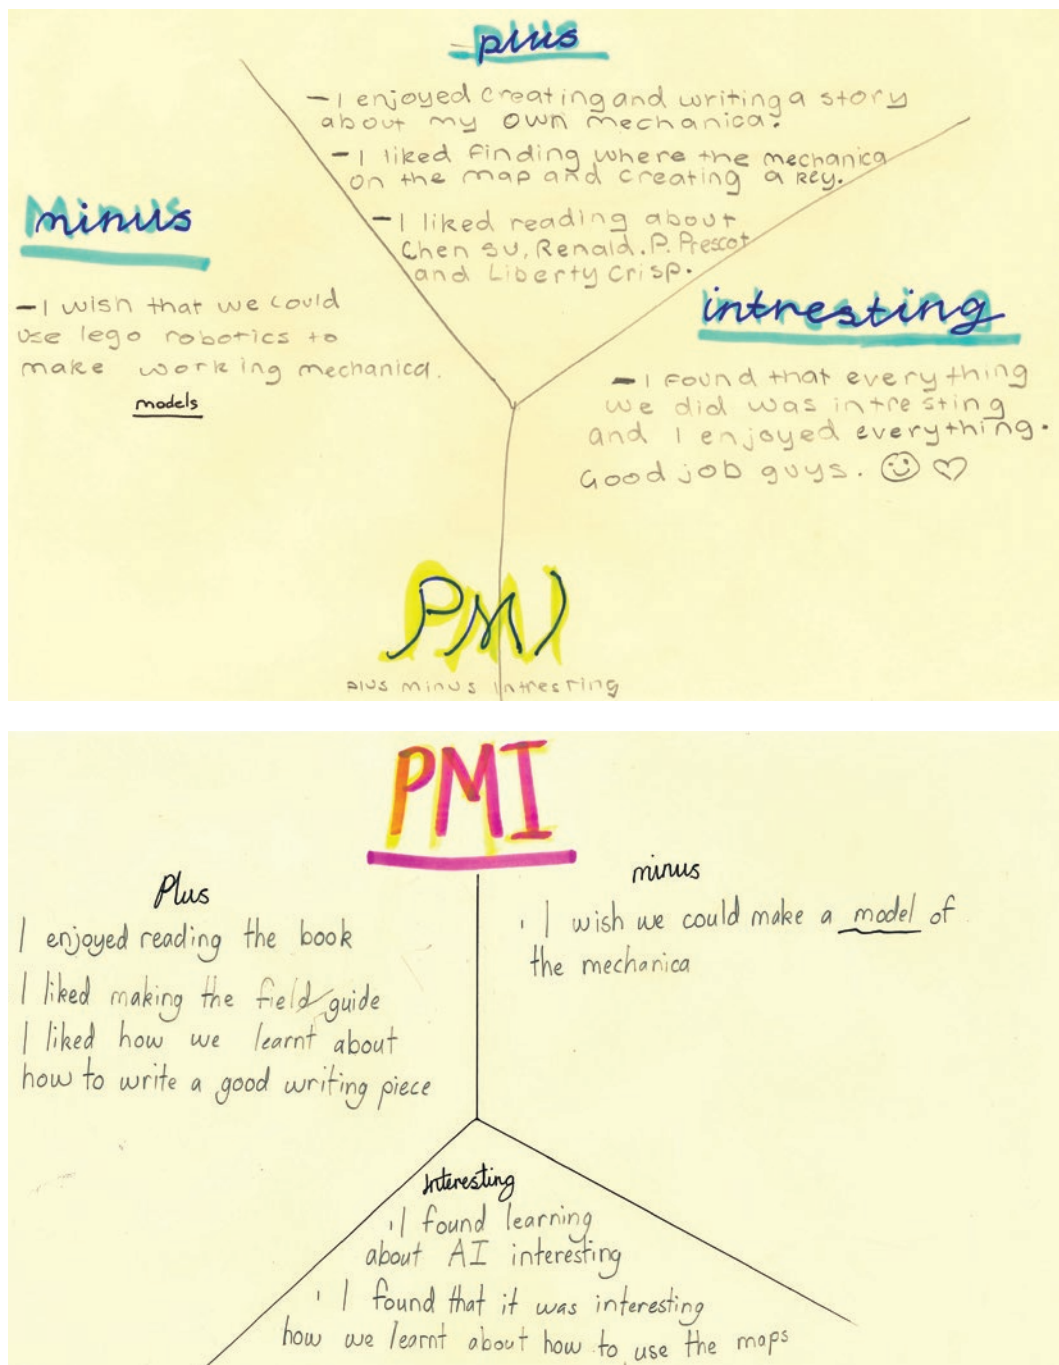 plus
- I enjoyed creating and writing a story
about my own mechanica.
- I liked finding where the mechanica
on the map and creating a key.
- I liked reading about
Chen su, Renald. P. Prescot
and Liberty Crisp.
minus
- I wish that we could
use lego robotics to
make working mechanica.
models
intresting
- I found that everything
we did was intresting
and I enjoyed everything.
Good job guys.
PMI
plus minus intresting
PMI
Plus
I enjoyed reading the book
I liked making the field guide
I liked how we learnt about
how to write a good writing piece
minus
· I wish we could make a model of
the mechanica
Interesting
· I found learning
about AI interesting
· I found that it was interesting
how we learnt about how to use the maps